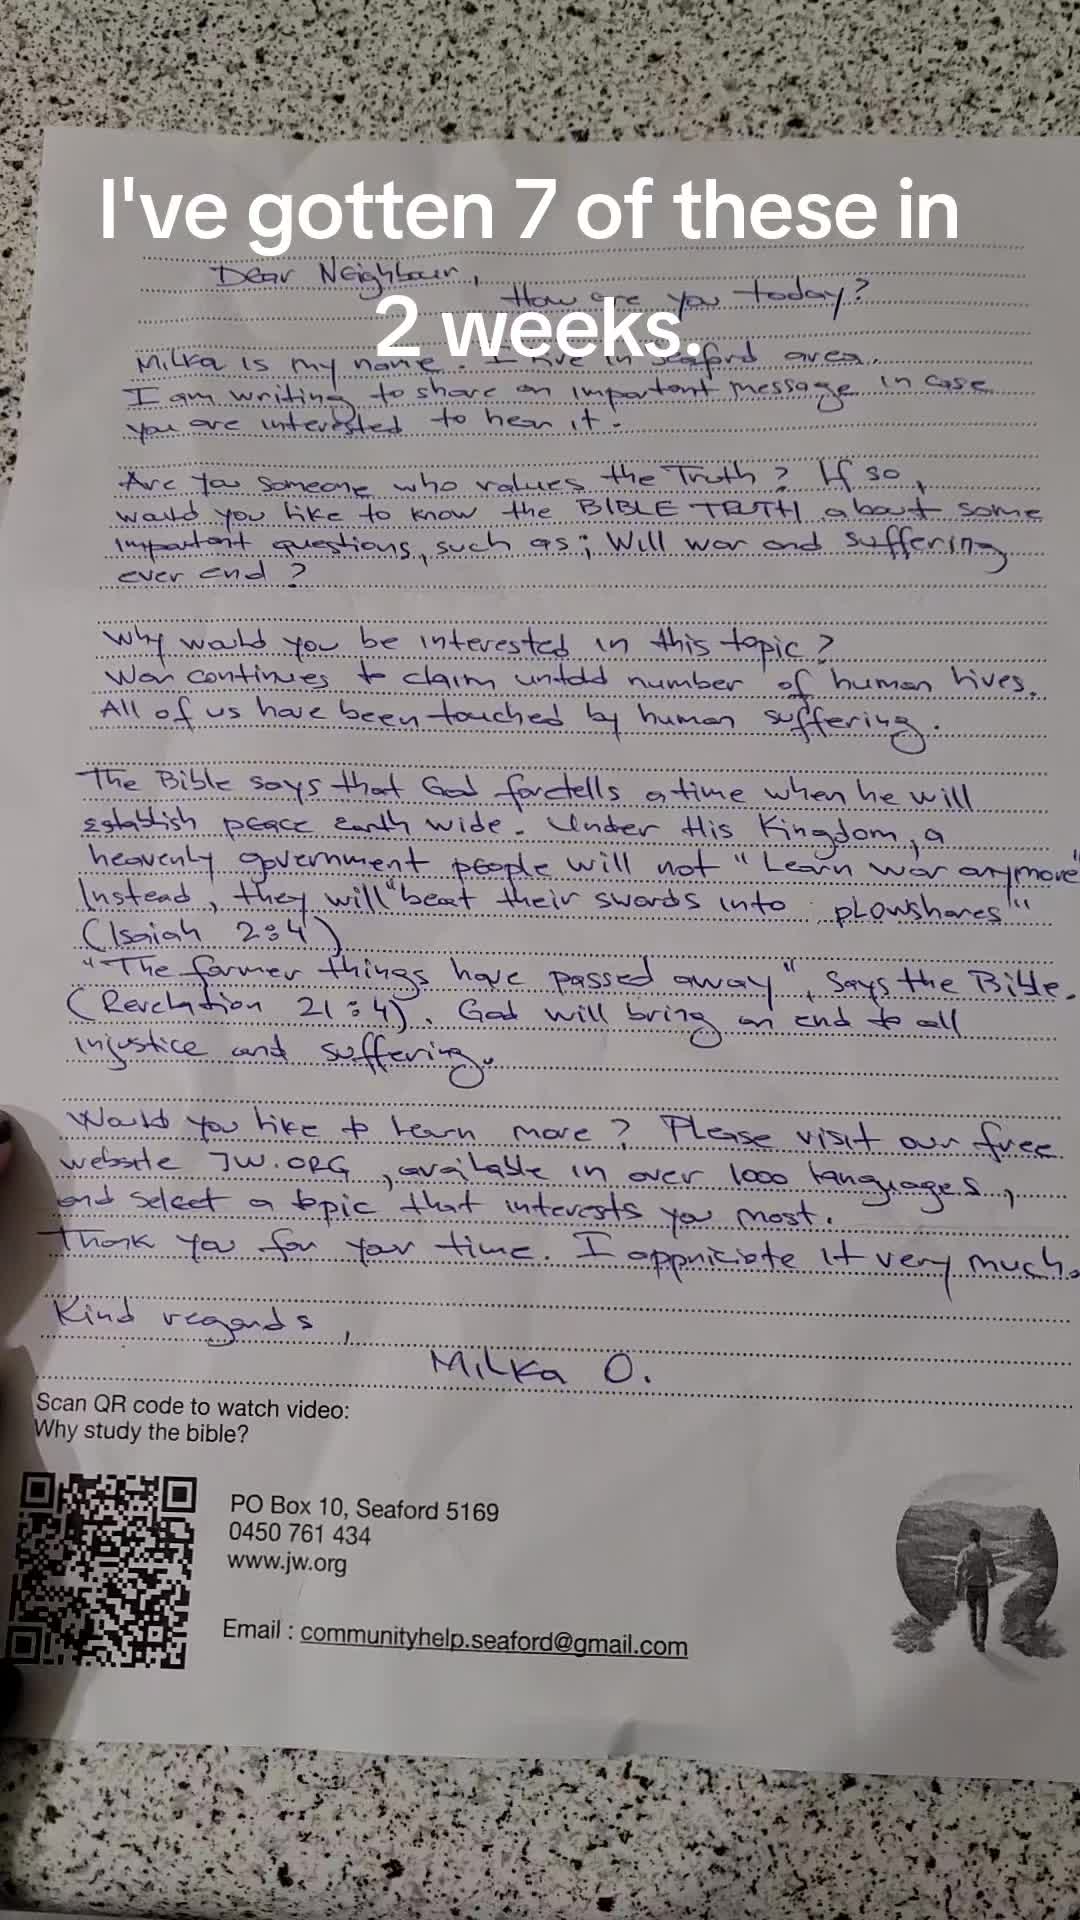 I've gotten 7 of these in
2 weeks.
Dear Neighbour,
How are you today?
Milka is my name. I live in Seaford area.
I am writing to share an important message in case
you are interested to hear it.
Are you someone who values the Truth? If so,
would you like to know the BIBLE TRUTH about some
important questions, such as; Will war and suffering
ever end?
Why would you be interested in this topic?
War continues to claim untold number of human lives.
All of us have been touched by human suffering.
The Bible says that God foretells a time when he will
establish peace Earth wide. Under His Kingdom, a
heavenly government people will not "Learn war anymore"
Instead, they will "beat their swords into plowshares"
(Isaiah 2:4)
"The former things have passed away", says the Bible.
(Revelation 21:4). God will bring an end to all
injustice and suffering.
Would you like to learn more? Please visit our free
website JW.ORG, available in over 1000 languages,
and select a topic that interests you most.
Thank you for your time. I appriciate it very much.
Kind regards,
Milka O.
Scan QR code to watch video:
Why study the bible?
PO Box 10, Seaford 5169
0450 761 434
www.jw.org
Email : communityhelp.seaford@gmail.com